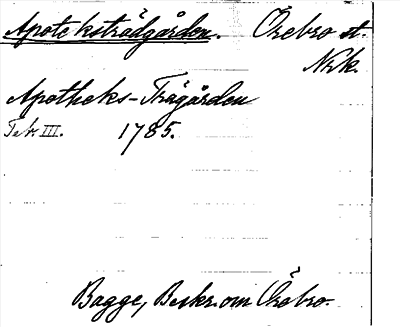 Apoteksträdgården. Örebro st.
Nrk.
Apotheks-Trägården
Tab III. 1785.
Bagge, Beskr. om Örebro.